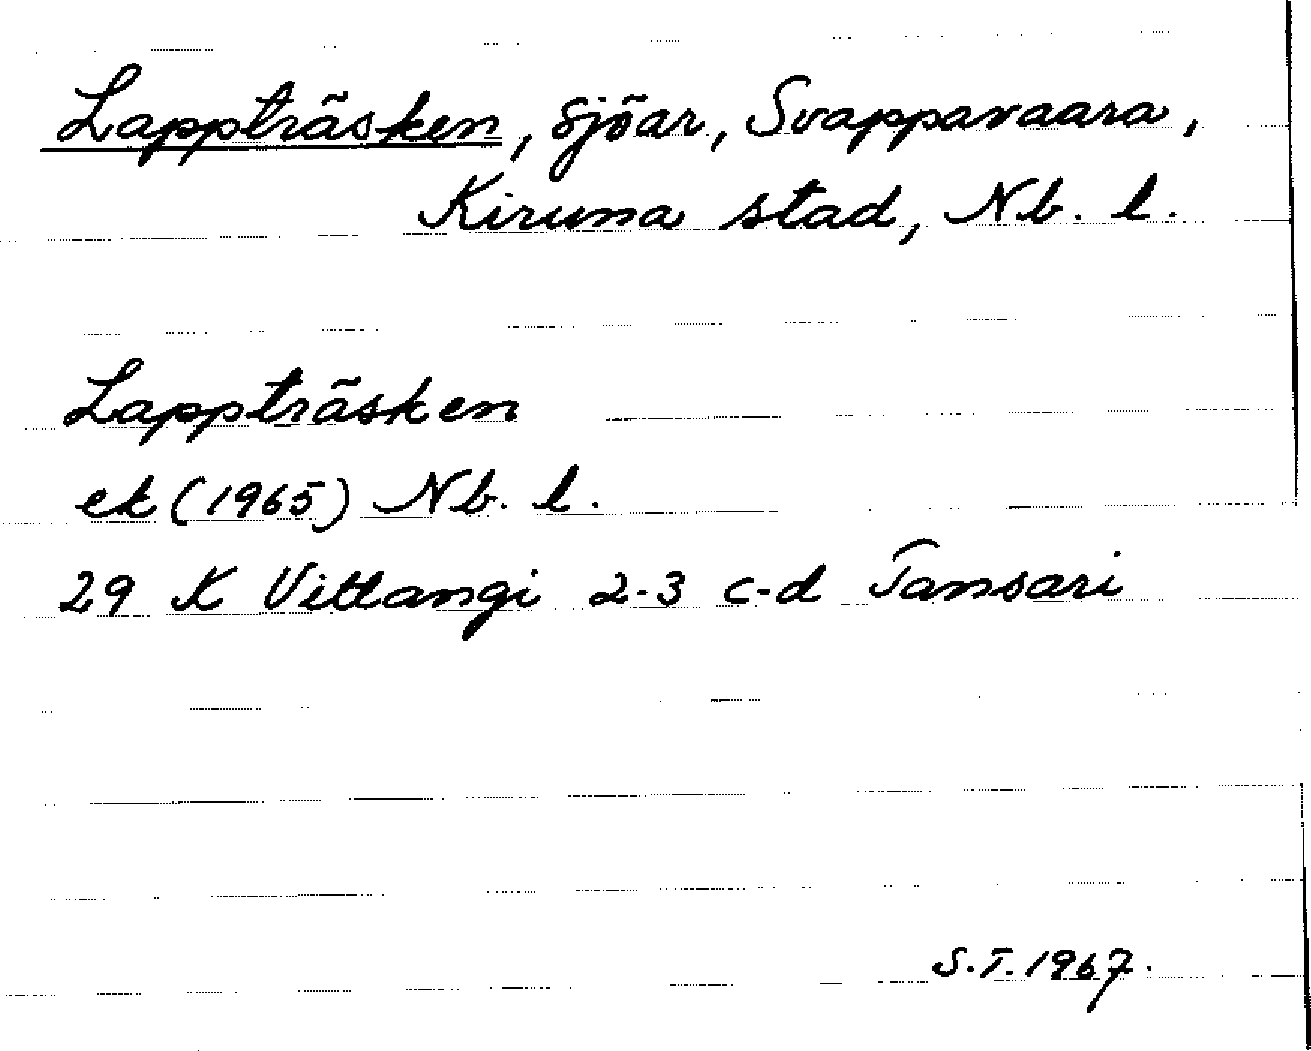 Lappträsken, sjöar, Svappavaara,
Kiruna stad, Nb. l.
Lappträsken
ek (1965) Nb. l.
29 K Vittangi 2-3 c-d Tansari
S.T. 1967.